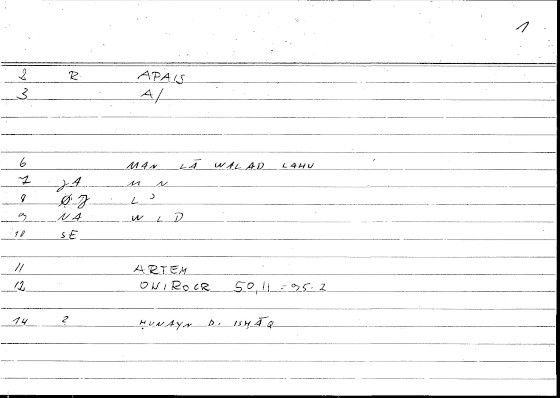 1
2 R APAIS
3 A/
6 MAN LĀ WALAD LAHU
7 JA M N
8 ØJ L ʾ
9 NA W L D
10 SE
11 ARTEM
12 ONIROCR 50,11 = 95.2
14 2 ḤUNAYN B. ISḤĀQ